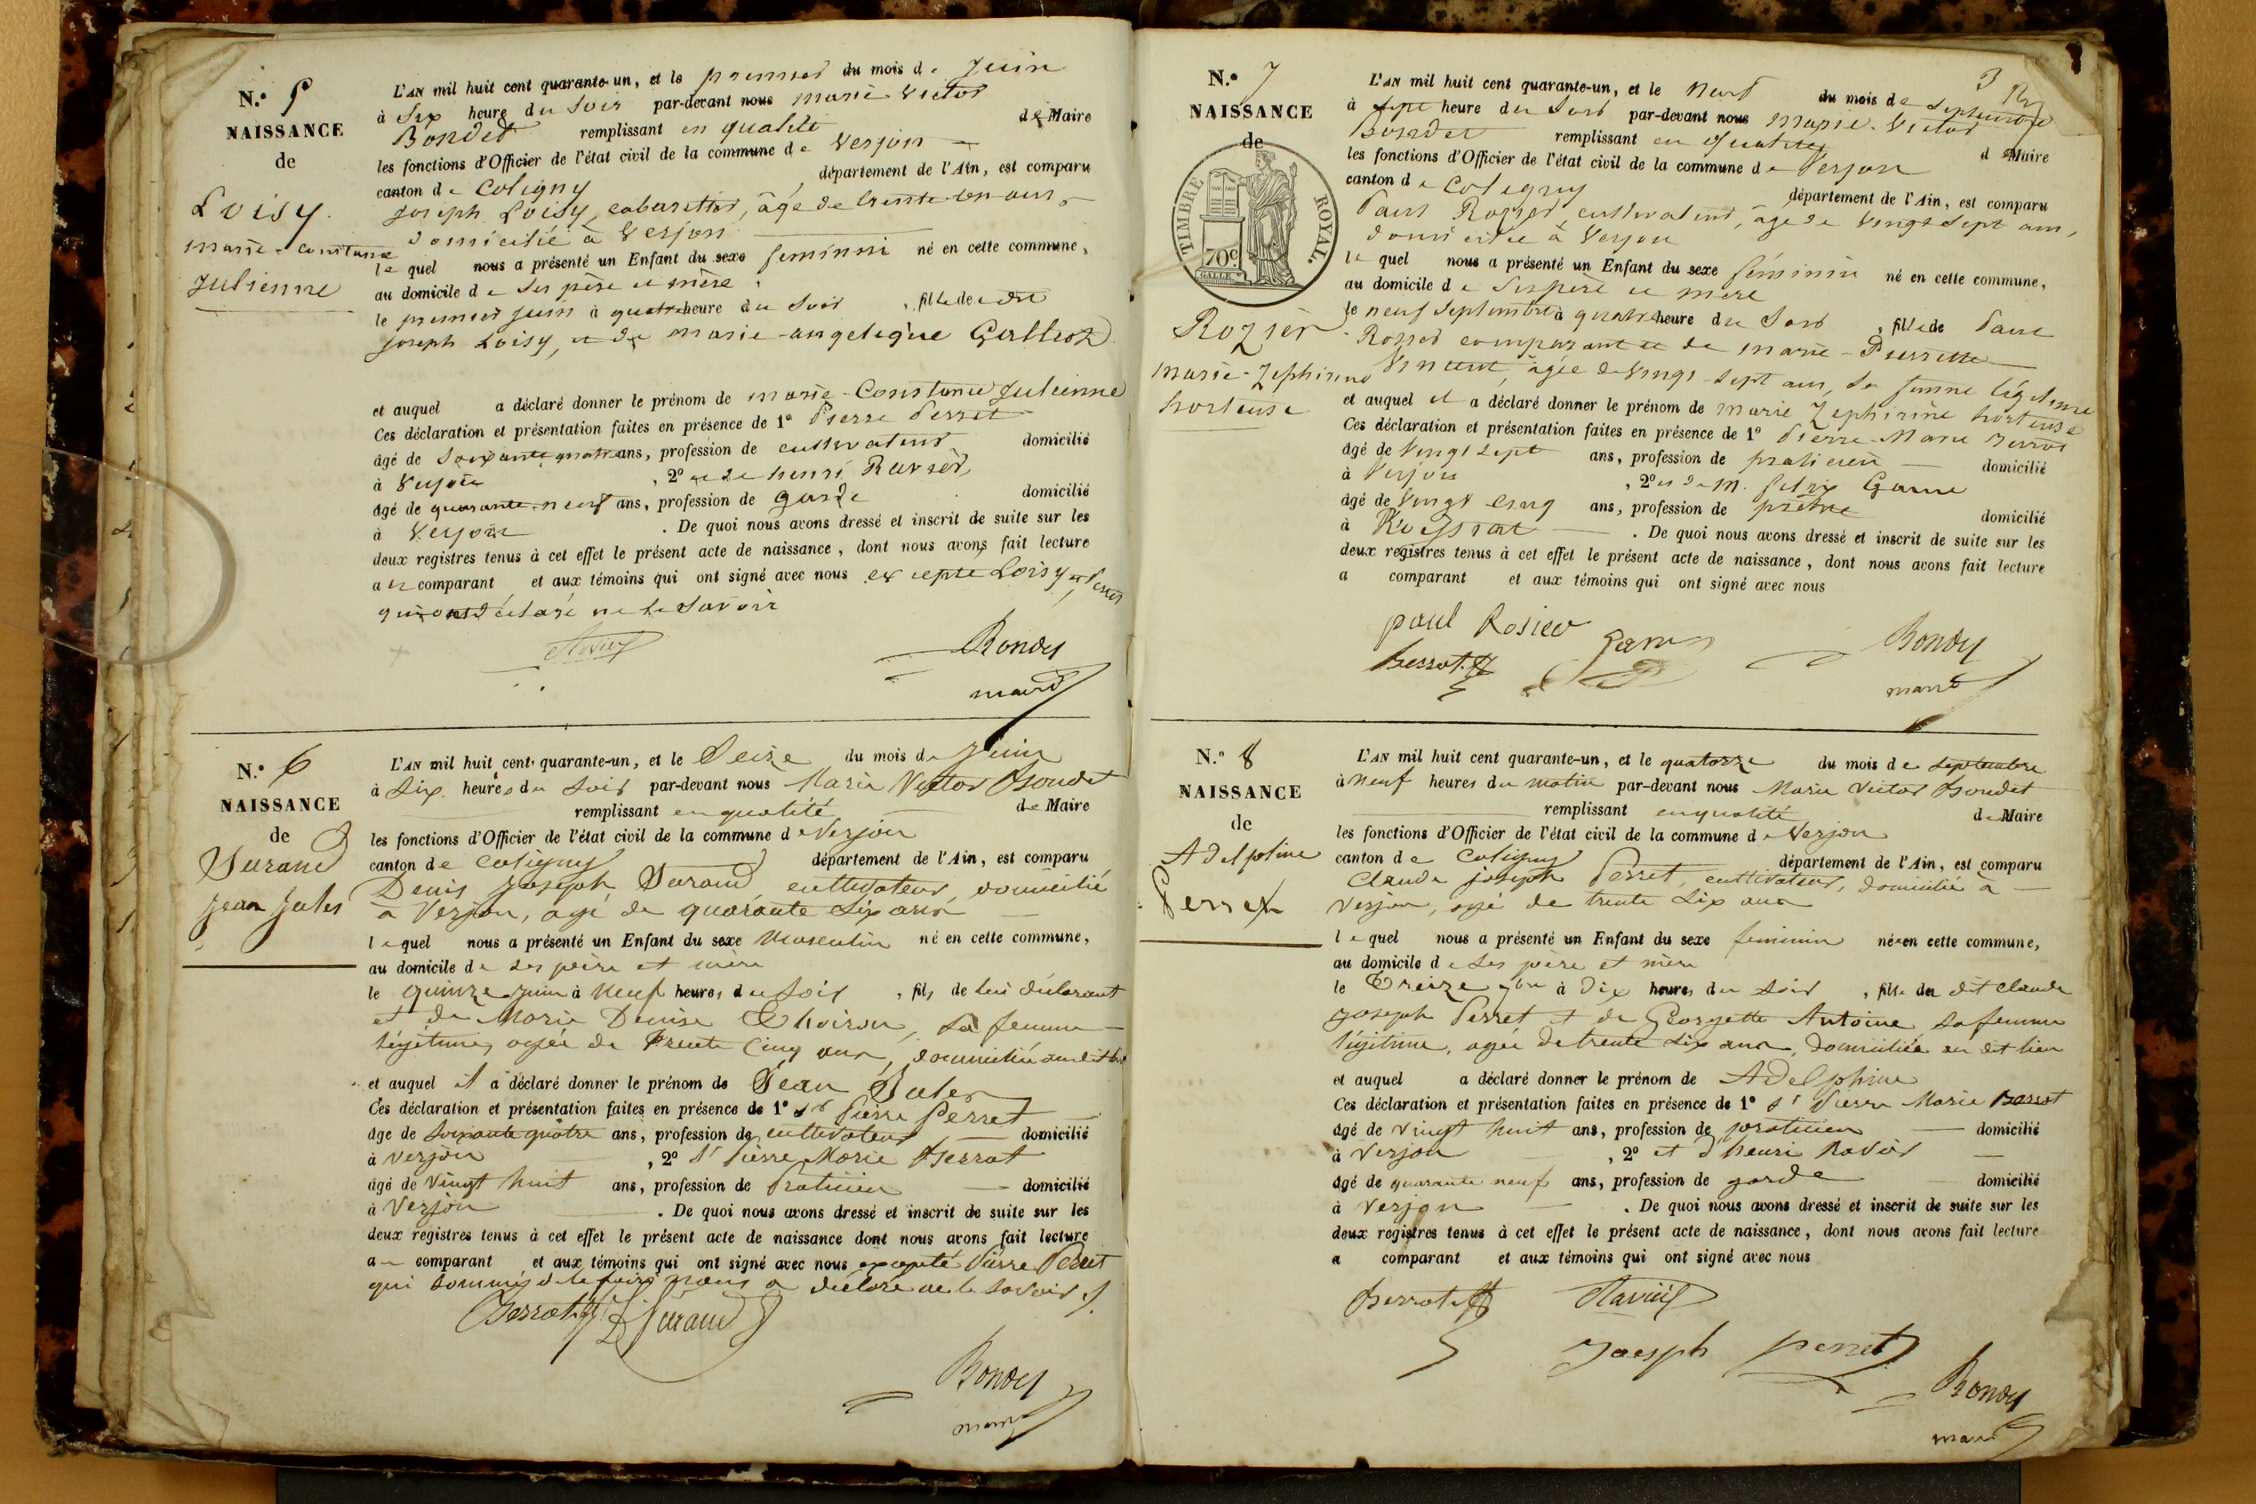 N.° 5
NAISSANCE
de
Loisy
marie-constance
Julienne
L'AN mil huit cent quarante-un, et le premier du mois de Juin
à Six heure du Soir par-devant nous marie Victor
Bondet remplissant en qualité de Maire
les fonctions d'Officier de l'état civil de la commune de Verjon
canton de Coligny département de l'Ain, est comparu
Joseph Loisy, cabaretier, âgé de trente
domicilié à Verjon
lequel nous a présenté un Enfant du sexe feminin né en cette commune,
au domicile de ses père et mère
le premier juin à quatre heure du Soir, fille de
Joseph Loisy, et de marie-angelique Gallion
et auquel a déclaré donner le prénom de marie-Constance Julienne
Ces déclaration et présentation faites en présence de 1° Pierre Perret
âgé de Soixante quatre ans, profession de cultivateur domicilié
à Verjon, 2° et de henri Ravier
âgé de quarante-neuf ans, profession de garde domicilié
à Verjon. De quoi nous avons dressé et inscrit de suite sur les
deux registres tenus à cet effet le présent acte de naissance, dont nous avons fait lecture
au comparant et aux témoins qui ont signé avec nous excepté Loisy et Perret
qui ont déclaré ne le savoir
Ravier
Bondet
maire
N.° 6
NAISSANCE
de
Durand
Jean Jules
L'AN mil huit cent quarante-un, et le Seize du mois de Juin
à Six heures du Soir par-devant nous Marie Victor Bondet
remplissant en qualité de Maire
les fonctions d'Officier de l'état civil de la commune de Verjon
canton de Coligny département de l'Ain, est comparu
Denis Joseph Durand, cultivateur, domicilié
à Verjon, agé de quarante six ans
lequel nous a présenté un Enfant du sexe Masculin né en cette commune,
au domicile de ses père et mère
le quinze Juin à Neuf heures du Soir, fils de lui déclarant
et de Marie Denise Choiron, Sa femme
légitime, agée de trente cinq ans, domiciliée audit lieu
et auquel il a déclaré donner le prénom de Jean Jules
Ces déclaration et présentation faites en présence de 1° Sr Pierre Perret
âge de soixante quatre ans, profession de cultivateur domicilié
à Verjon, 2° Sr Pierre Marie Berrot
âgé de Vingt huit ans, profession de Praticien domicilié
à Verjon. De quoi nous avons dressé et inscrit de suite sur les
deux registres tenus à cet effet le présent acte de naissance dont nous avons fait lecture
au comparant et aux témoins qui ont signé avec nous excepté Pierre Perret
qui sommé de le faire nous a déclaré ne le savoir
Berrot Durand
Bondet
maire
3
N.° 7
NAISSANCE
de
TIMBRE ROYAL.
70c.
GALLE
Rozier
marie-Zephirine
hortense
L'AN mil huit cent quarante-un, et le neuf du mois de septembre
à sept heure du Soir par-devant nous marie-Victor
Bondet remplissant en qualité de Maire
les fonctions d'Officier de l'état civil de la commune de Verjon
canton de Coligny département de l'Ain, est comparu
Paul Rozier, cultivateur, âgé de vingt sept ans,
domicilié à Verjon
lequel nous a présenté un Enfant du sexe féminin né en cette commune,
au domicile de ses père et mère
le neuf Septembre à quatre heure du Soir, fille de Paul
Rozier comparant et de marie-Pierrette
Vincent, âgée de vingt-sept ans, sa femme légitime
et auquel il a déclaré donner le prénom de marie Zephirine hortense
Ces déclaration et présentation faites en présence de 1° Pierre-Marie Berrot
âgé de Vingt sept ans, profession de praticien domicilié
à Verjon, 2° et de M. Felix Game
âgé de Vingt cinq ans, profession de prêtre domicilié
à Roissiat. De quoi nous avons dressé et inscrit de suite sur les
deux registres tenus à cet effet le présent acte de naissance, dont nous avons fait lecture
a comparant et aux témoins qui ont signé avec nous
paul Rosier Game
Berrot
Bondet
maire
N.° 8
NAISSANCE
de
Adelphine
Perret
L'AN mil huit cent quarante-un, et le quatorze du mois de septembre
à neuf heures du matin par-devant nous Marie Victor Bondet
remplissant en qualité de Maire
les fonctions d'Officier de l'état civil de la commune de Verjon
canton de Coligny département de l'Ain, est comparu
Claude joseph Perret, cultivateur, domicilié à
Verjon, agé de trente six ans
lequel nous a présenté un Enfant du sexe feminin née en cette commune,
au domicile de ses père et mère
le Treize 7bre à Dix heures du soir, fille du dit Claude
Joseph Perret et de Georgette Antoine sa femme
légitime, agée de trente six ans, domiciliée au dit lieu
et auquel a déclaré donner le prénom de Adelphine
Ces déclaration et présentation faites en présence de 1° Sr Pierre Marie Berrot
âgé de vingt huit ans, profession de praticien domicilié
à Verjon, 2° et d'henri Ravier
âgé de quarante neuf ans, profession de garde domicilié
à Verjon. De quoi nous avons dressé et inscrit de suite sur les
deux registres tenus à cet effet le présent acte de naissance, dont nous avons fait lecture
a comparant et aux témoins qui ont signé avec nous
Berrot Ravier
Joesph perret
Bondet
maire